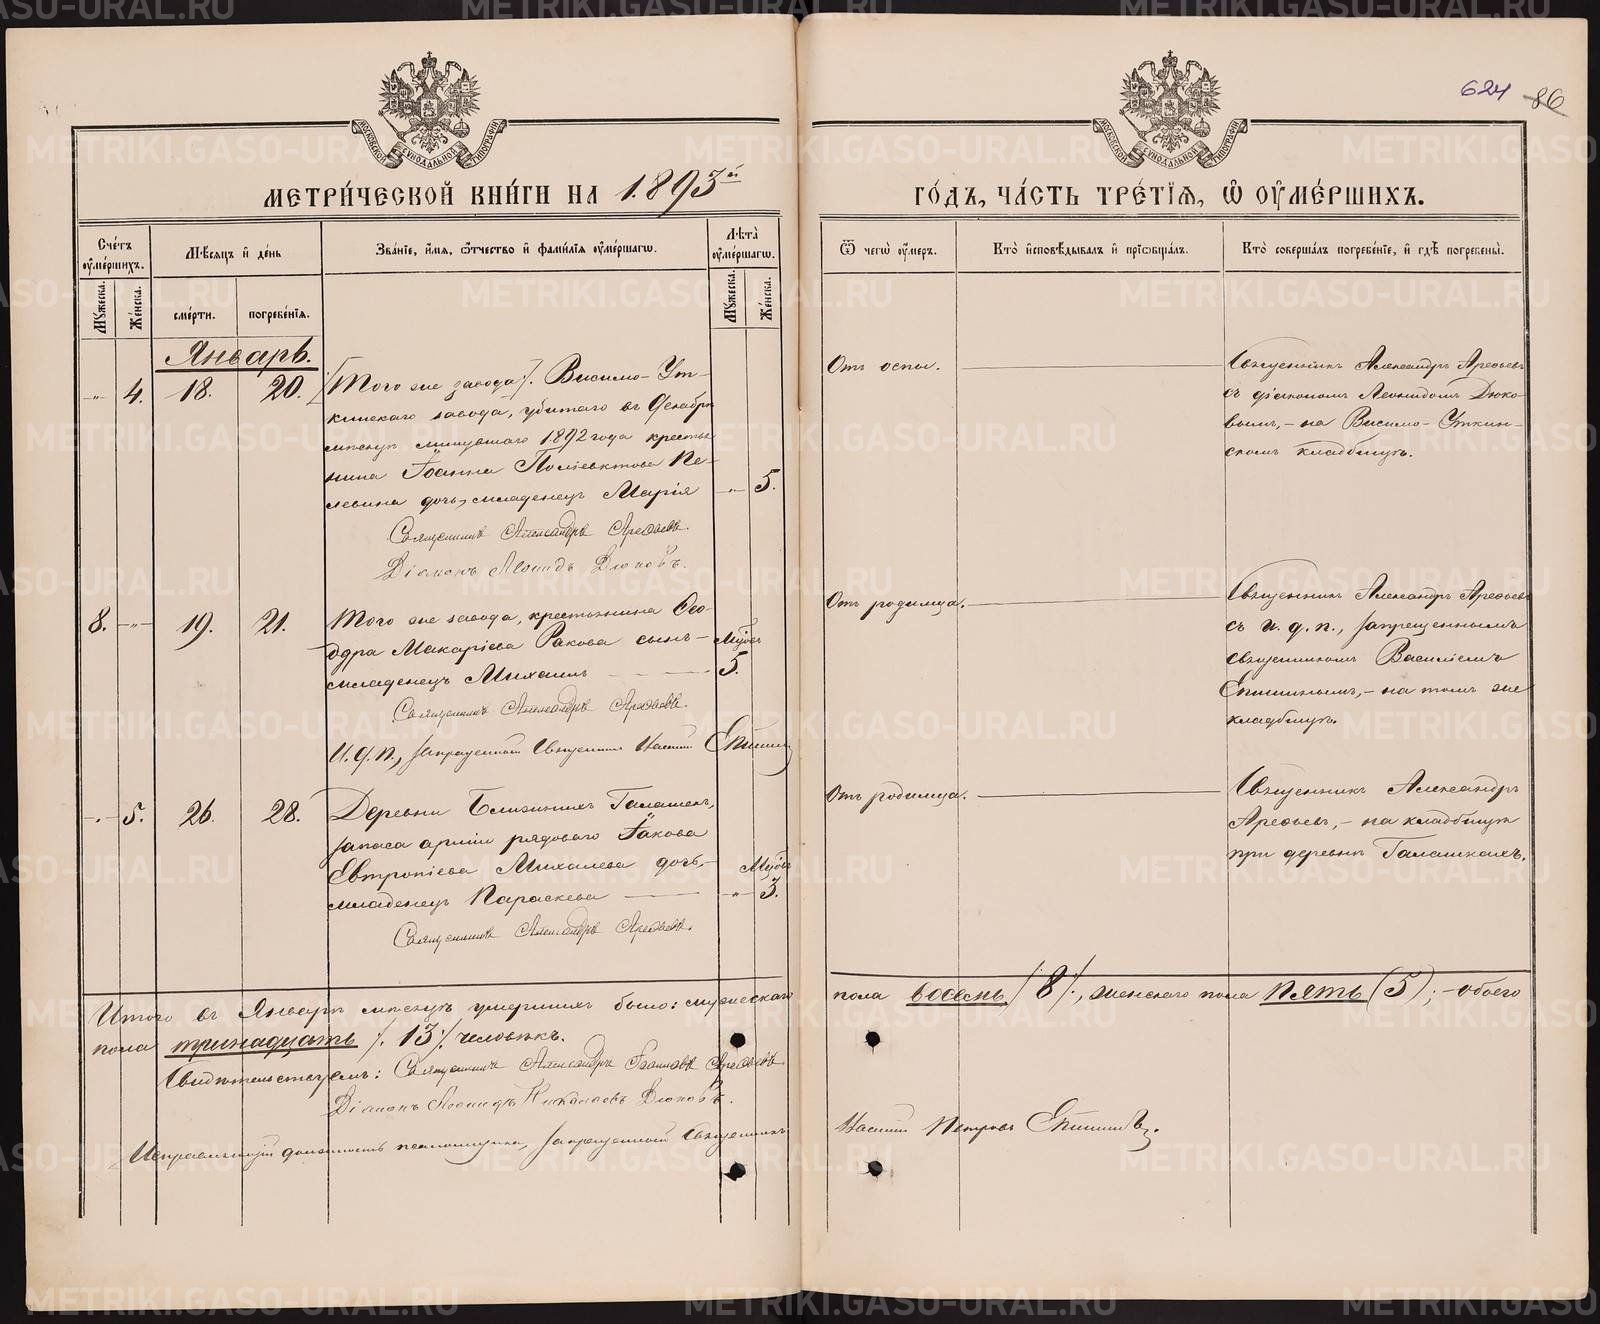 624 86
МЕТРИ́ЧЕСКОЙ КНИ́ГИ НА 1893й
ГО́ДЪ, ЧА́СТЬ ТРЕ́ТІЯ, Ѡ ОУМЕ́РШИХЪ.
Счéтъ оумéршихъ.
Мѣсяцъ и́ дéнь
Звáніе, и́мя, ѻ́тчество и́ фамúлія оумéршагѡ.
Лѣта̀ оумéршагѡ.
Ѿ чегѡ̀ оу́меръ.
Ктò и́сповѣ́дывалъ и́ прїѡбщáлъ.
Ктò совершáлъ погребéнїе, и́ гдѣ̀ погребены̀.
Мꙋ́жеска.
Жéнска.
смéрти.
погребéнїя.
Мꙋ́жеска.
Жéнска.
Январь.
-„- 4. 18. 20.
[Того же завода]. Висимо-Ут-
кинскаго завода, убитаго въ Декабрѣ
мѣсяцѣ минувшаго 1892 года крестья-
нина Іоанна Поліевктова Пе-
левина дочь, младенецъ Марія -„- 5.
Священникъ Александръ Арефьевъ.
Діаконъ Леонидъ Дюковъ.
Отъ оспы.
Священникъ Александръ Арефьевъ
съ діакономъ Леонидомъ Дюко-
вымъ, - на Висимо-Уткин-
скомъ кладбищѣ.
8. -„- 19. 21.
Того же завода, крестьянина Ѳео-
дора Макаріева Ракова сынъ -
младенецъ Михаилъ 5.
Священникъ Александръ Арефьевъ.
И. д. п., запрещенный Священникъ Василій Епишинъ
Отъ родимца.
Священникъ Александръ Арефьевъ
съ и. д. п., запрещеннымъ
священникомъ Василіемъ
Епишинымъ, - на томъ же
кладбищѣ.
-„- 5. 26. 28.
Деревни Ближнихъ Галашекъ,
запаса арміи рядоваго Іакова
Евтропіева Михалева дочь, -
младенецъ Параскева -„- 3.
Священникъ Александръ Арефьевъ.
Отъ родимца.
Священникъ Александръ
Арефьевъ, - на кладбищѣ
при деревнѣ Галашкахъ.
Итого въ Январѣ мѣсяцѣ умершихъ было: мужескаго пола восемь /8/., женскаго пола пять (5); - обоего
пола тринадцать /. 13 /. человѣкъ.
Свидѣтельствуемъ: Священникъ Александръ Іоанновъ Арефьевъ
Діаконъ Леонидъ Николаевъ Дюковъ.
Исправляющій должность псаломщика, запрещенный Священникъ Василій Петровъ Епишинъ.